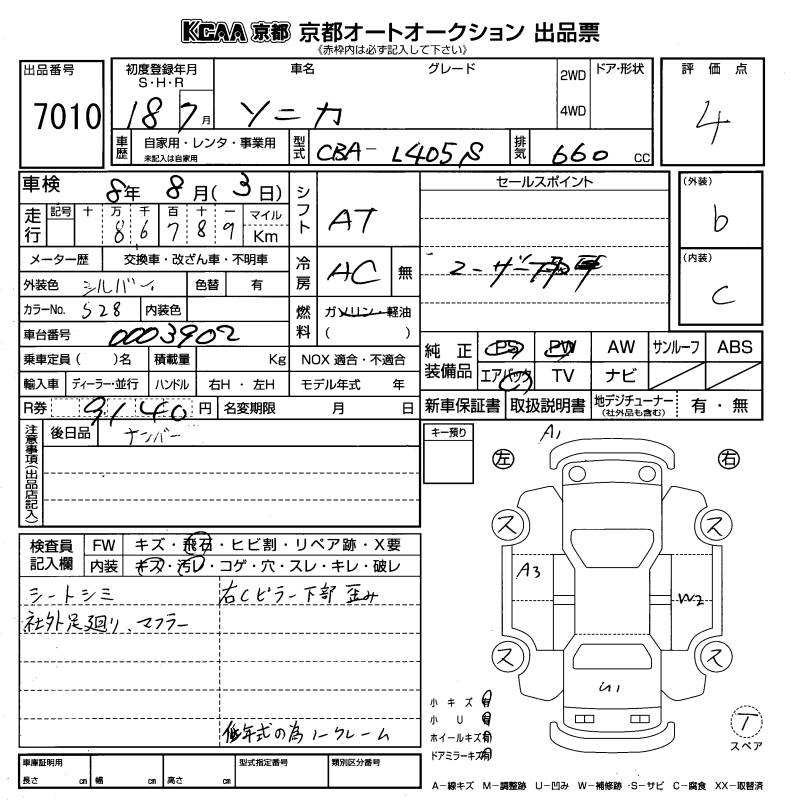 KCAA 京都 京都オートオークション 出品票
《赤枠内は必ず記入して下さい》
出品番号
7010
初度登録年月
S・H・R
18 7月
車名 グレード
ソニカ
2WD
4WD
ドア・形状
評価点
4
車歴
自家用・レンタ・事業用
未記入は自家用
型式
CBA-L405S
排気
660 CC
車検 8年 8月(3日)
走行
記号 十 万 千 百 十 一 マイル
8 6 7 8 9 Km
シフト
AT
メーター歴 交換車・改ざん車・不明車
外装色 シルバー 色替 有
冷房
AC 無
カラーNo. S28 内装色
燃料
ガソリン・軽油
( )
車台番号 0003902
乗車定員( )名 積載量 Kg NOX適合・不適合
輸入車 ディーラー・並行 ハンドル 右H・左H モデル年式 年
R券 9140円 名変期限 月 日
セールスポイント
ユーザー
(外装)
b
(内装)
C
純正装備品
PS PW AW サンルーフ ABS
エアバック TV ナビ
新車保証書 取扱説明書 地デジチューナー(社外品も含む) 有・無
注意事項(出品店記入)
後日品 ナンバー
キー預り
検査員記入欄
FW キズ・飛石・ヒビ割・リペア跡・X要
内装 キズ・汚レ・コゲ・穴・スレ・キレ・破レ
シートシミ 右Cピラー下部 歪み
社外足廻り、マフラー
低年式の為ノークレーム
A1
左 右
ス ス
A3 W2
ス ス
U1
小キズ 有
小U 有
ホイールキズ 有
ドアミラーキズ 有
T
スペア
車庫証明用 型式指定番号 類別区分番号
長さ cm 幅 cm 高さ cm
A-線キズ M-調整跡 U-凹み W-補修跡 S-サビ C-腐食 XX-取替済